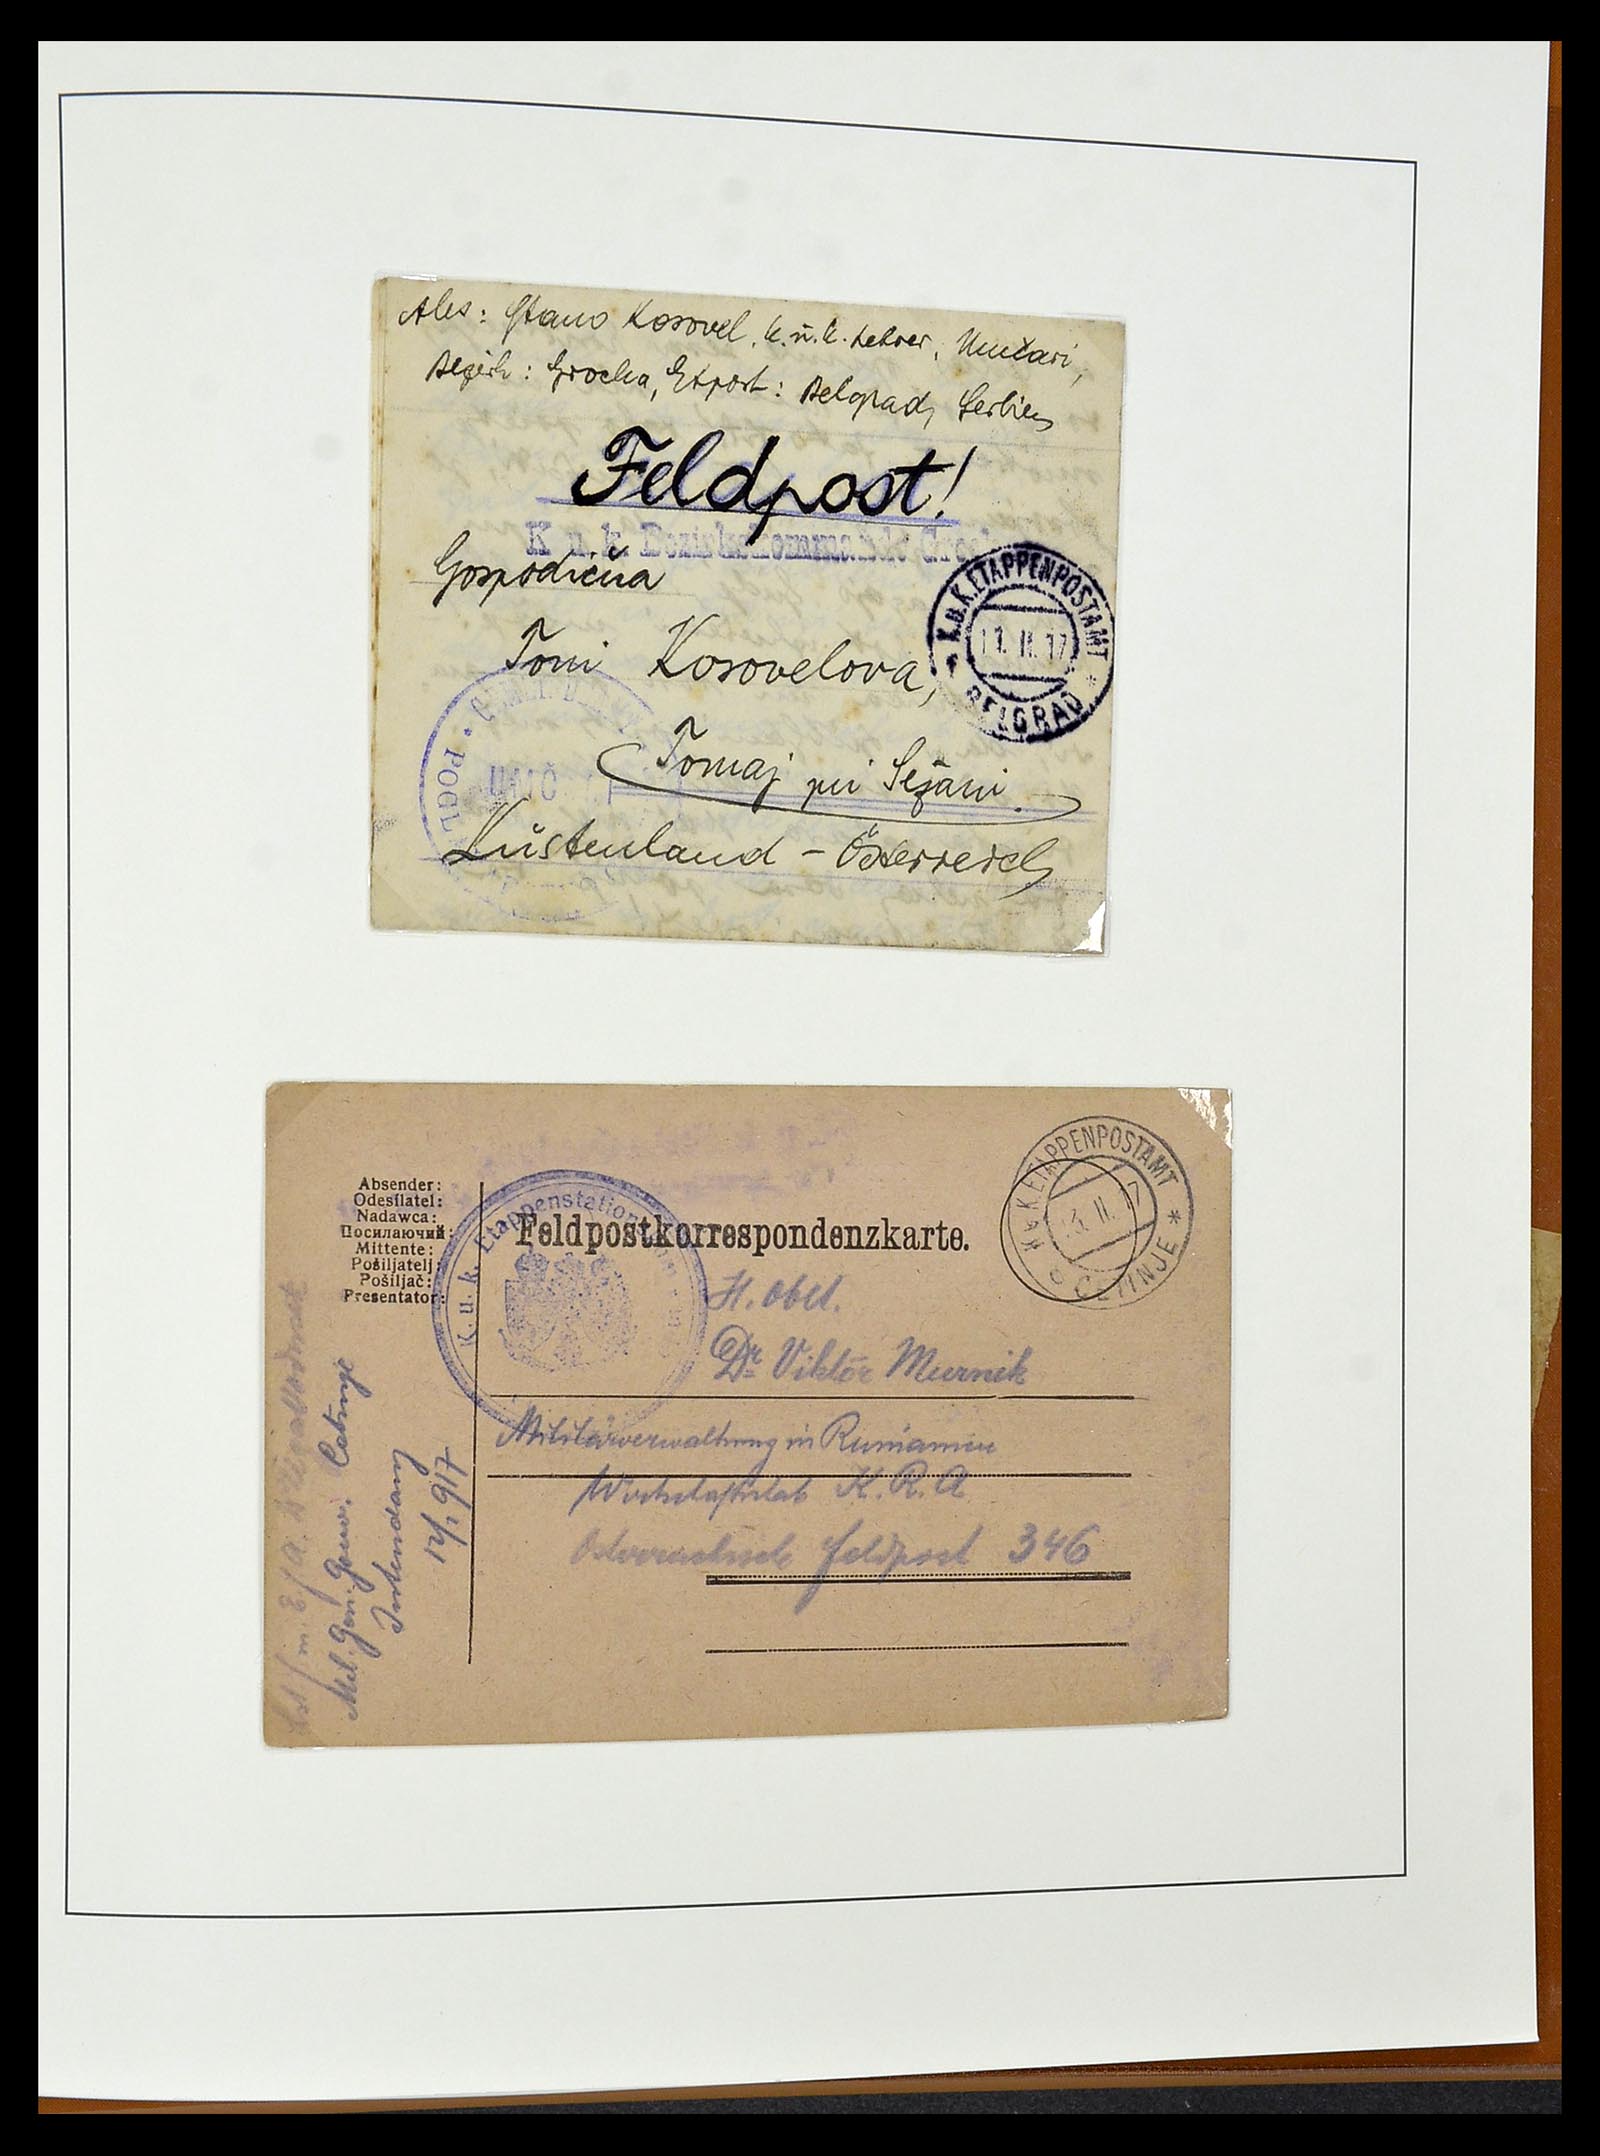 Abs: Stano Kosovel, k. u. k. Lehrer, Umčari,
Bezirk: Grocka, Etpost: Belgrad, Serbien
Feldpost!
K. u. k. Bezirkskommando
Gospodična
K.u.K. ETAPPENPOSTAMT
11. II. 17
BELGRAD
Toni Kosovelova,
POGL
UMČ
Tomaj pri Sežani.
Küstenland – Österreich
K.u.K. ETAPPENPOSTAMT
3. II. 17
CETINJE
Absender:
Odesílatel:
Nadawca:
Посилаючий:
Mittente:
Pošiljatelj:
Pošiljač:
Presentator:
K. u. k. Etappenstation
Feldpostkorrespondenzkarte.
H. Oblt.
Dr Viktor Murnik
Militärverwaltung in Rumänien
K. R. A
Feldpost 346
Mil. Gen. Gouv. Cetinje
Intendanz
12/1 917